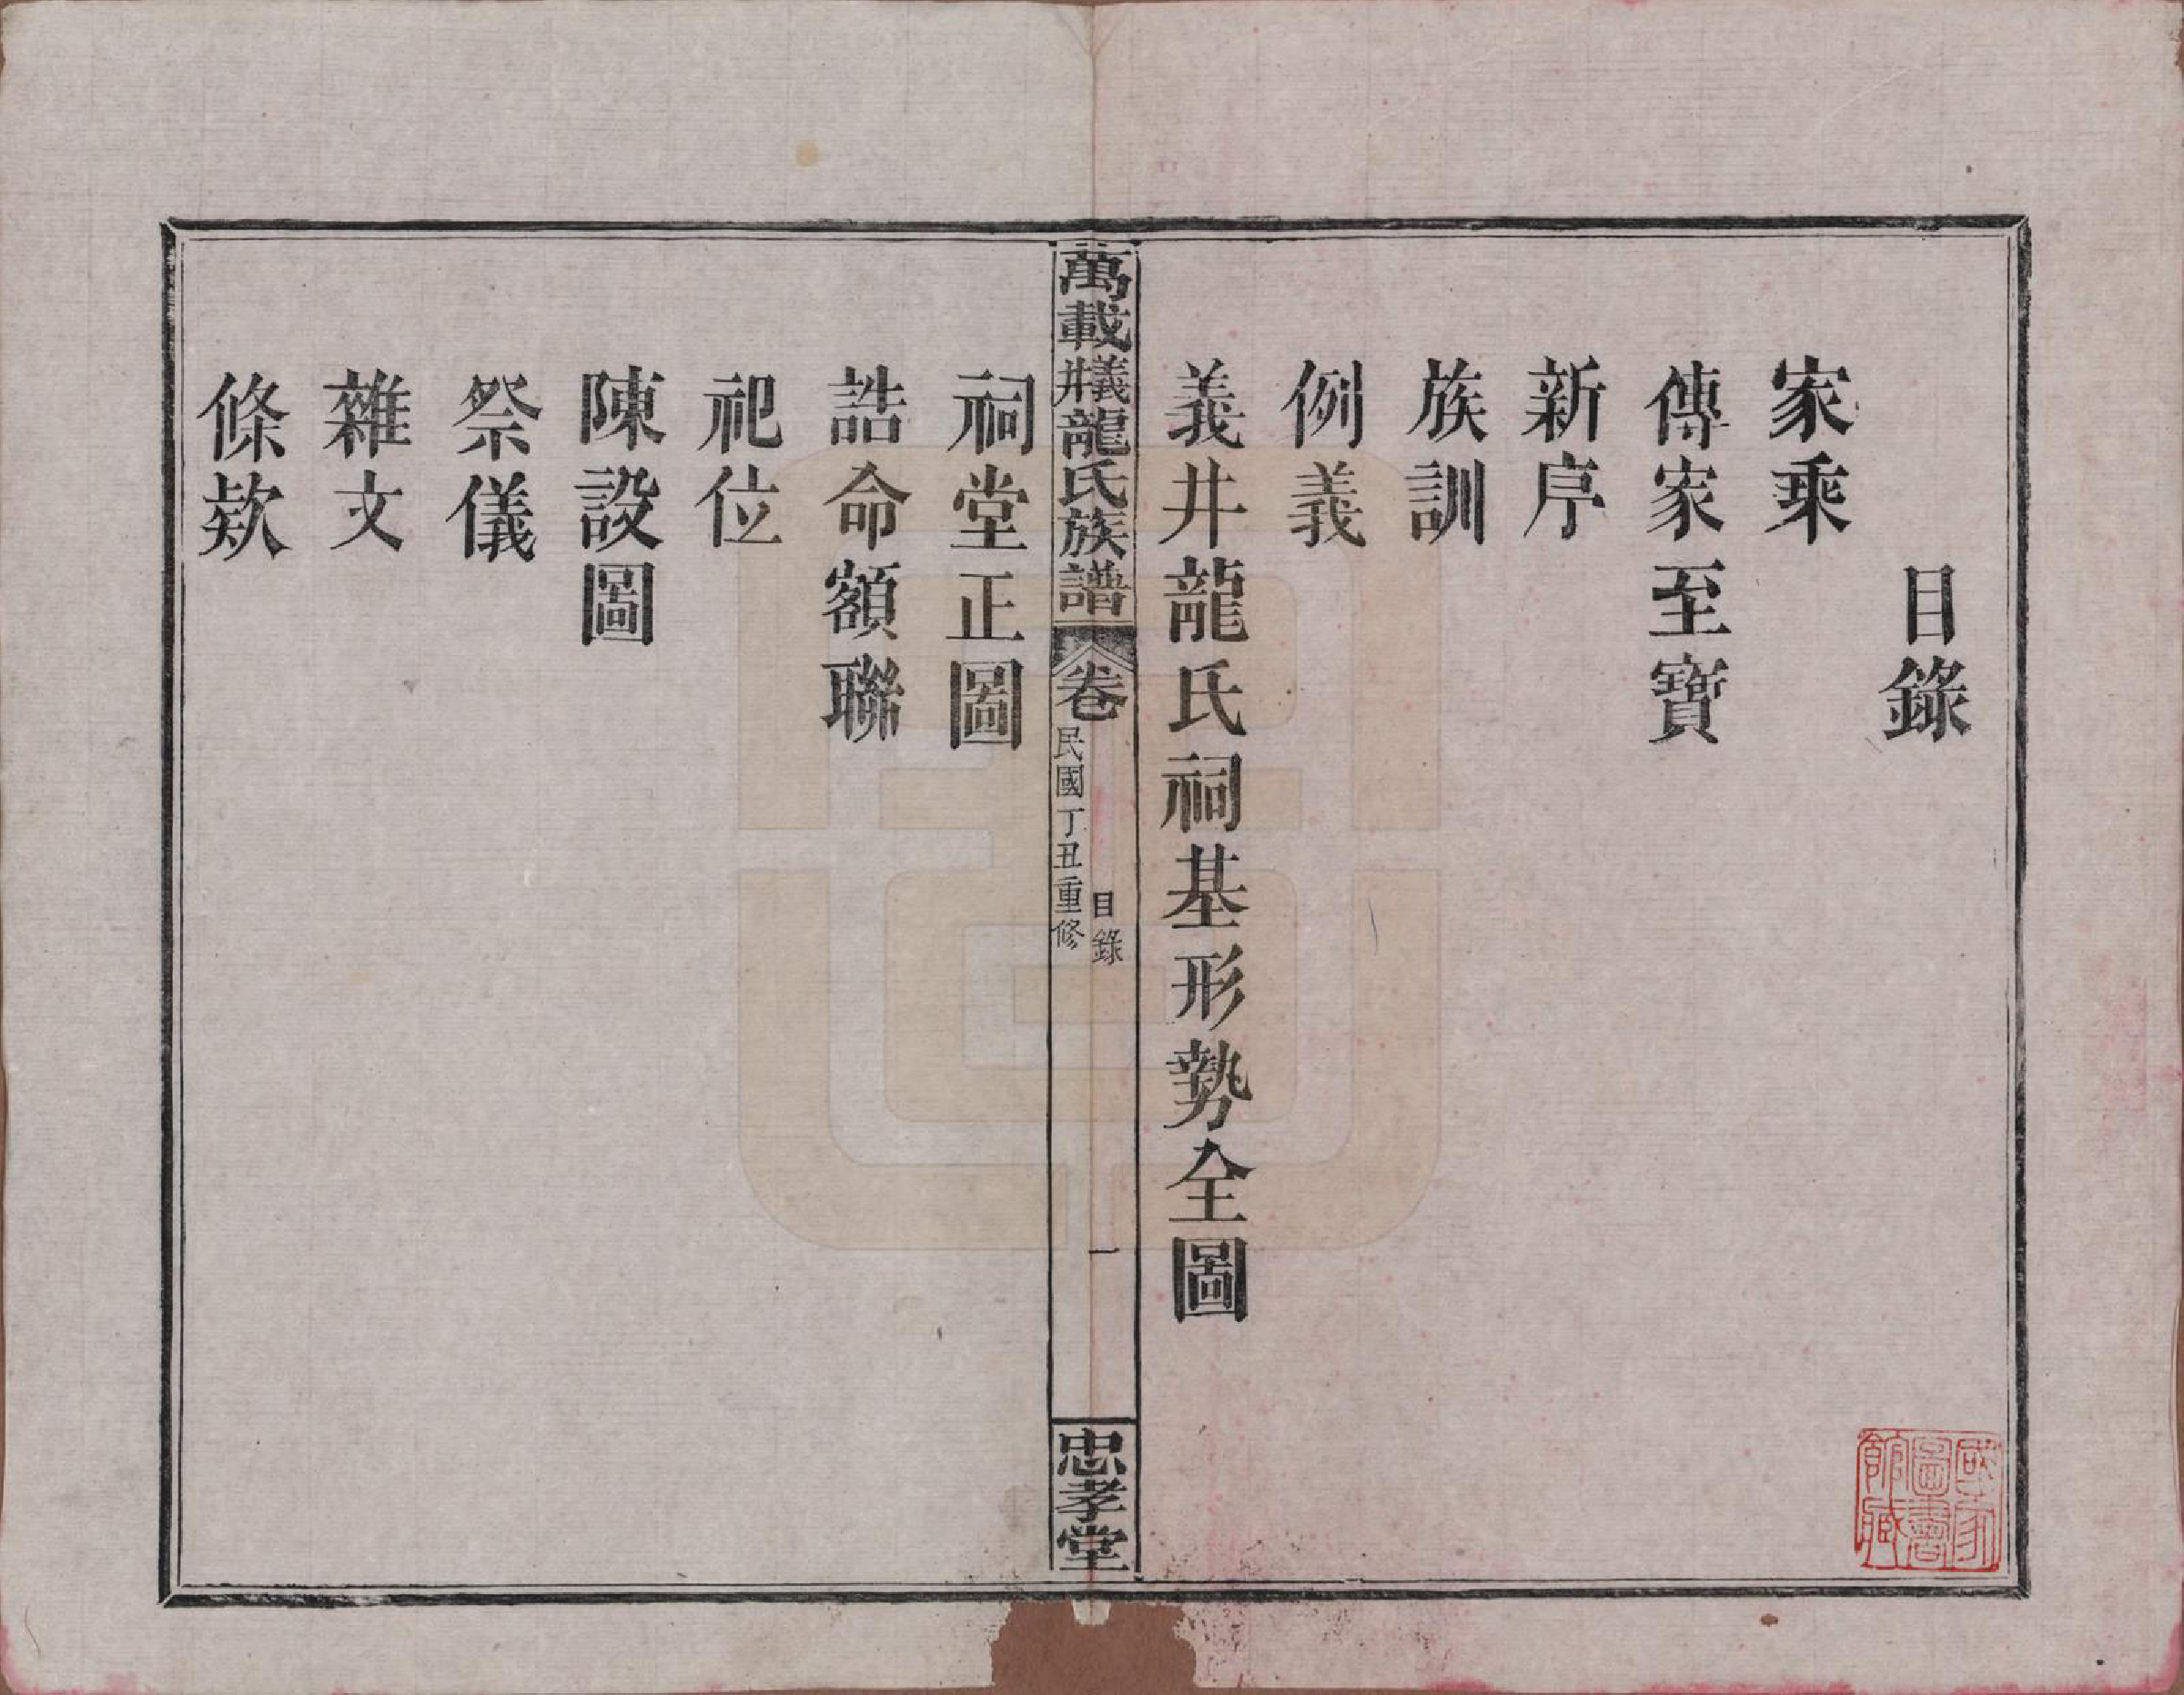 目錄
家乘
傳家至寶
新序
族訓
例義
義井龍氏祠基形勢全圖
萬載龍氏族譜
卷
目錄
一
民國丁丑重修
忠孝堂
祠堂正圖
誥命額聯
祀位
陳設圖
祭儀
雜文
條欵
國家圖書館藏